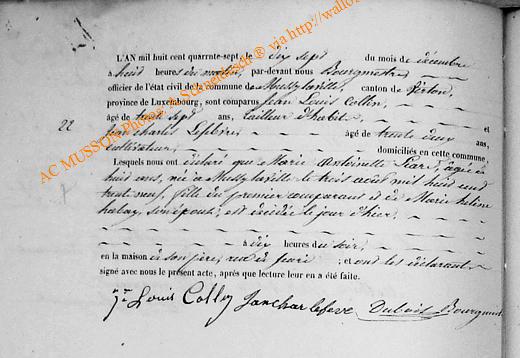 L'AN mil huit cent quarante-sept, le dix sept du mois de décembre
à huit heures du matin, par-devant nous Bourgmestre
officier de l'état civil de la commune de Mussy laville, canton de Virton,
province de Luxembourg, sont comparus Jean Louis Collin,
âgé de trente sept ans, tailleur d'habits et
22
Jean Charles Lefebvre, âgé de trente deux ans,
cultivateur, domiciliés en cette commune,
Lesquels nous ont déclaré que Marie Antoinette agée de
huit ans, née à Mussy laville le trois aout mil huit cent
trente neuf, fille du premier comparant et de Marie helene
son épouse, est décédée le jour d'hier,
à dix heures du soir,
en la maison de son père, rue ; et ont les déclarants
signé avec nous le présent acte, après que lecture leur en a été faite.
Jn Louis Jancharlefeve Bourgmest
AC MUSSON Photo A Schneidesch @ via http://wallo